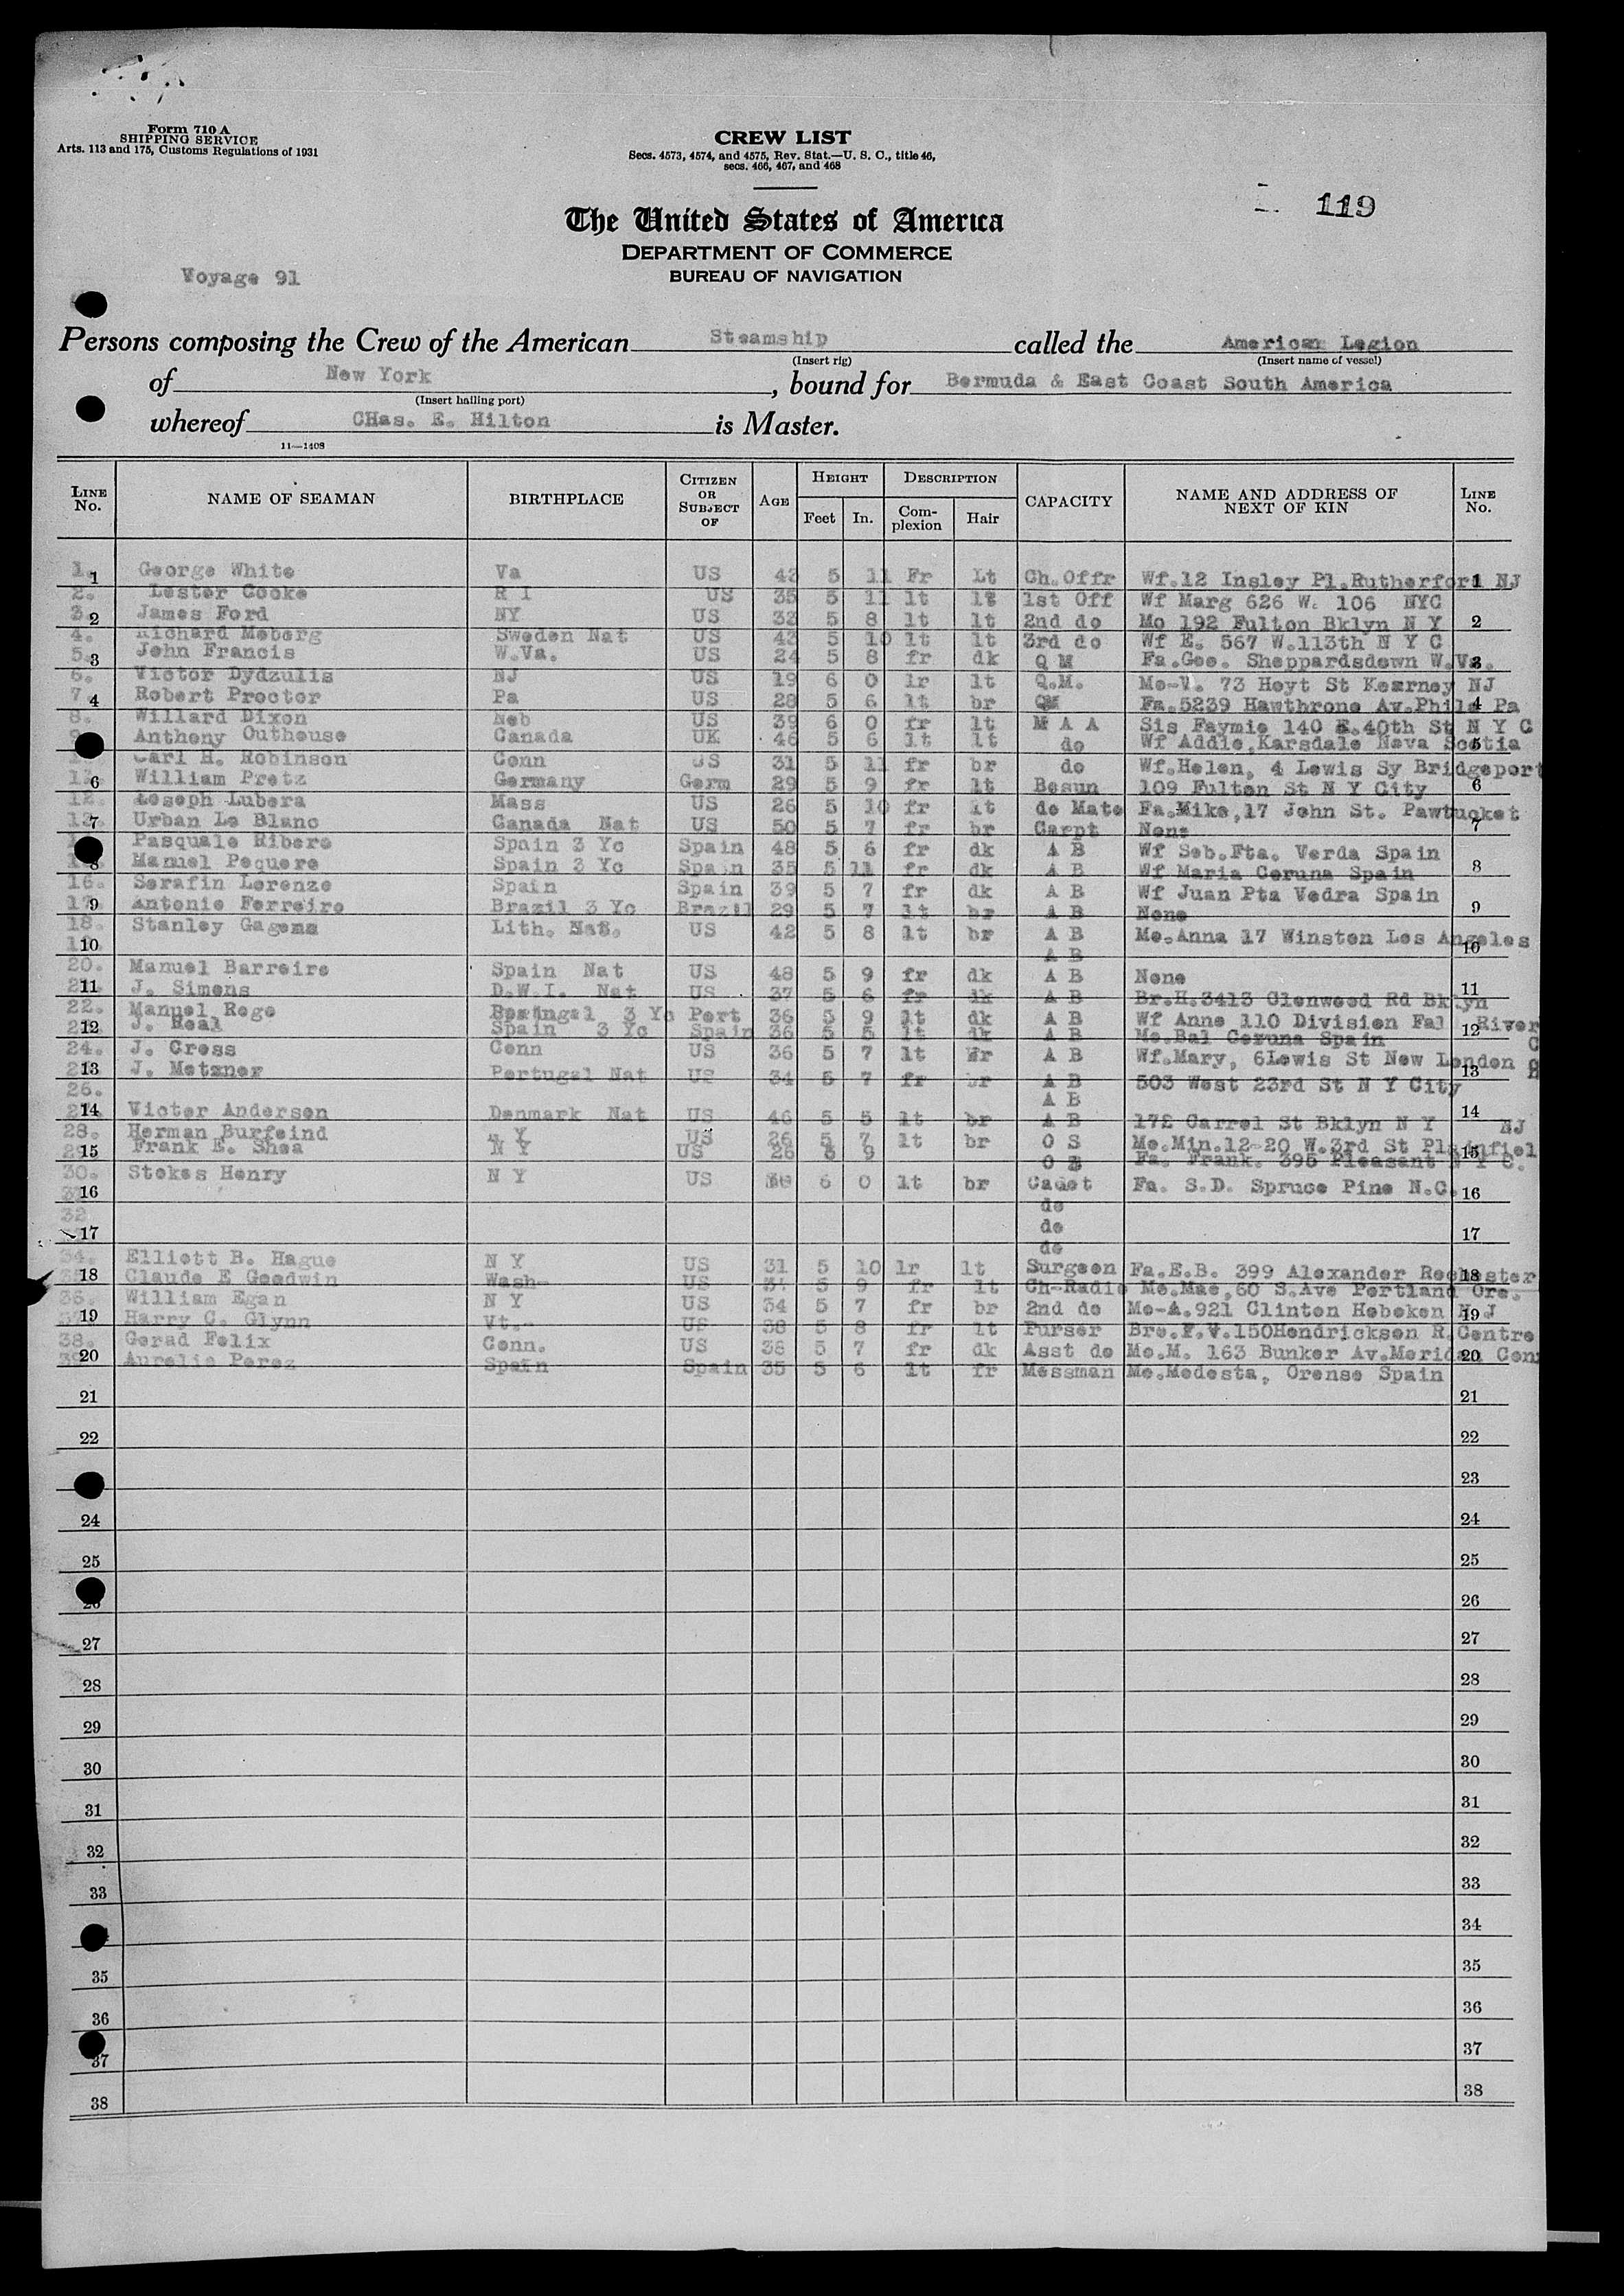 Form 710 A
SHIPPING SERVICE
Arts. 113 and 175, Customs Regulations of 1931
CREW LIST
Secs. 4573, 4574, and 4575, Rev. Stat.—U. S. C., title 46,
secs. 466, 467, and 468
119
The United States of America
DEPARTMENT OF COMMERCE
BUREAU OF NAVIGATION
Voyage 91
Persons composing the Crew of the American Steamship called the American Legion
(Insert rig) (Insert name of vessel)
of New York, bound for Bermuda & East Coast South America
(Insert hailing port)
whereof CHas. E. Hilton is Master.
11—1408
LINE No. NAME OF SEAMAN BIRTHPLACE CITIZEN OR SUBJECT OF AGE HEIGHT Feet In. DESCRIPTION Complexion Hair CAPACITY NAME AND ADDRESS OF NEXT OF KIN LINE No.
1. George White Va US 42 5 11 Fr Lt Ch.Offr Wf.12 Insley Pl.Rutherford NJ
2. Lester Cooke R I US 35 5 11 lt lt 1st Off Wf Marg 626 W. 106 NYC
3. James Ford NY US 32 5 8 lt lt 2nd do Mo 192 Fulton Bklyn N Y
4. Richard Moberg Sweden Nat US 42 5 10 lt lt 3rd do Wf E. 567 W.113th N Y C
5. John Francis W.Va. US 24 5 8 fr dk Q M Fa.Geo. Sheppardsdown W.Va.
6. Victor Dydzulis NJ US 19 6 0 lr lt Q.M. Mo-V. 73 Hoyt St Kearney NJ
7. Robert Proctor Pa US 28 5 6 lt br QM Fa.5239 Hawthrone Av.Phila Pa
8. Willard Dixon Neb US 39 6 0 fr lt M A A Sis Faymie 140 E.40th St N Y C
Anthony Outhouse Canada UK 46 5 6 lt lt do Wf Addie,Karsdale Nova Scotia
Carl H. Robinson Conn US 31 5 11 fr br do Wf.Helen, 4 Lewis Sy Bridgeport
11. William Pretz Germany Germ 29 5 9 fr lt Bosun 109 Fulton St N Y City
12. Joseph Lubera Mass US 26 5 10 fr lt do Mate Fa.Mike,17 John St. Pawtucket
13. Urban Le Blanc Canada Nat US 50 5 7 fr br Carpt None
Pasquale Ribero Spain 3 Yc Spain 48 5 6 fr dk A B Wf Seb.Fta. Verda Spain
Manuel Pequere Spain 3 Yc Spain 35 5 11 fr dk A B Wf Maria Coruna Spain
16. Serafin Lorenze Spain Spain 39 5 7 fr dk A B Wf Juan Pta Vedra Spain
17. Antonio Ferreiro Brazil 3 Yc Brazil 29 5 7 lt br A B None
18. Stanley Lith. Nat. US 42 5 8 lt br A B Mo.Anna 17 Winston Los Angeles
19. A B
20. Manuel Barreiro Spain Nat US 48 5 9 fr dk A B None
21. J. Simons D.W.I. Nat US 37 5 6 fr dk A B Br.H.3413 Glenwood Rd Bklyn
22. Manuel Rego Portugal 3 Yc Port 36 5 9 lt dk A B Wf Anne 110 Division Fal River
J. Real Spain 3 Yc Spain 36 5 5 lt dk A B Mo.Bal Coruna Spain
24. J. Cross Conn US 36 5 7 lt br A B Wf.Mary, 6Lewis St New London C
J. Metzner Portugal Nat US 34 5 7 fr br A B 503 West 23rd St N Y City
26. A B
Victor Anderson Denmark Nat US 46 5 5 lt br A B 172 Carrol St Bklyn N Y
28. Herman Burfeind N Y US 26 5 7 lt br O S Mo.Min.12-20 W.3rd St Plainfiel NJ
29. Frank E. Shea N Y US 26 9 O S Fa. Frank. 395 Pleasant N Y C.
30. Stokes Henry N Y US 6 0 lt br Cadet Fa. S.D. Spruce Pine N.C.
do
32 do
do
34. Elliott B. Hague N Y US 31 5 10 lr lt Surgeon Fa.E.B. 399 Alexander Rochester
Claude E Goodwin Wash- US 5 9 fr lt Ch-Radio Mo.Mae,60 S.Ave Portland Ore.
36. William Egan N Y US 34 5 7 fr br 2nd do Mo-A.921 Clinton Hoboken N J
Harry C. Glynn Vt.- US 38 5 8 fr lt Purser Bro.F.V.150Hendrickson R.Centre
38. Gerad Felix Conn. US 38 5 7 fr dk Asst do Mo.M. 163 Bunker Av.Meriden Con
39. Aurelio Perez Spain Spain 35 5 6 lt fr Messman Mo.Modesta, Orense Spain
1 1
2 2
3 3
4 4
5
6 6
7 7
8 8
9 9
10 10
11 11
12 12
13 13
14 14
15 15
16 16
17 17
18 18
19 19
20 20
21 21
22 22
23
24 24
25 25
26 26
27 27
28 28
29 29
30 30
31 31
32 32
33 33
34
35 35
36 36
37 37
38 38